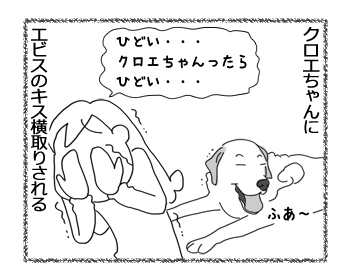 クロエちゃんに
エビスのキス横取りされる
ひどい・・・
クロエちゃんったら
ひどい・・・
ふあ～